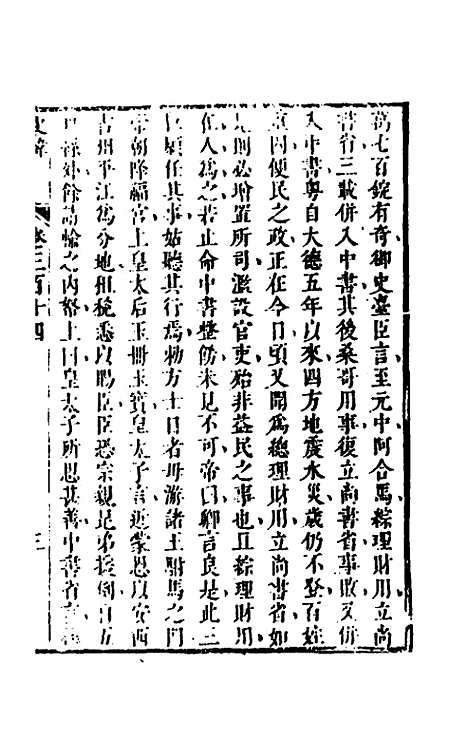 萬七百錠有奇御史臺臣言至元中阿合馬綜理財用立尚
書省三載併入中書其後桑哥用事復立尚書省事敗又併
入中書粤自大德五年以來四方地震水災歲仍不登百姓
重困便民之政正在今日頃又聞為總理財用立尚書省如
是則必增置所司濫設官吏殆非益民之事也且綜理財用
在人為之若止命中書整飭未見不可帝曰卿言良是此三
臣願任其事姑聽其行焉勑方士日者毋游諸王駙馬之門
帝朝隆福宫上皇太后玉冊玉寶皇太子言近蒙恩以安西
吉州平江為分地租稅悉以賜臣臣恐宗親昆弟援例自五
戶絲外餘請輸之内帑上曰皇太子所思甚善中書省
卷三百十四
三